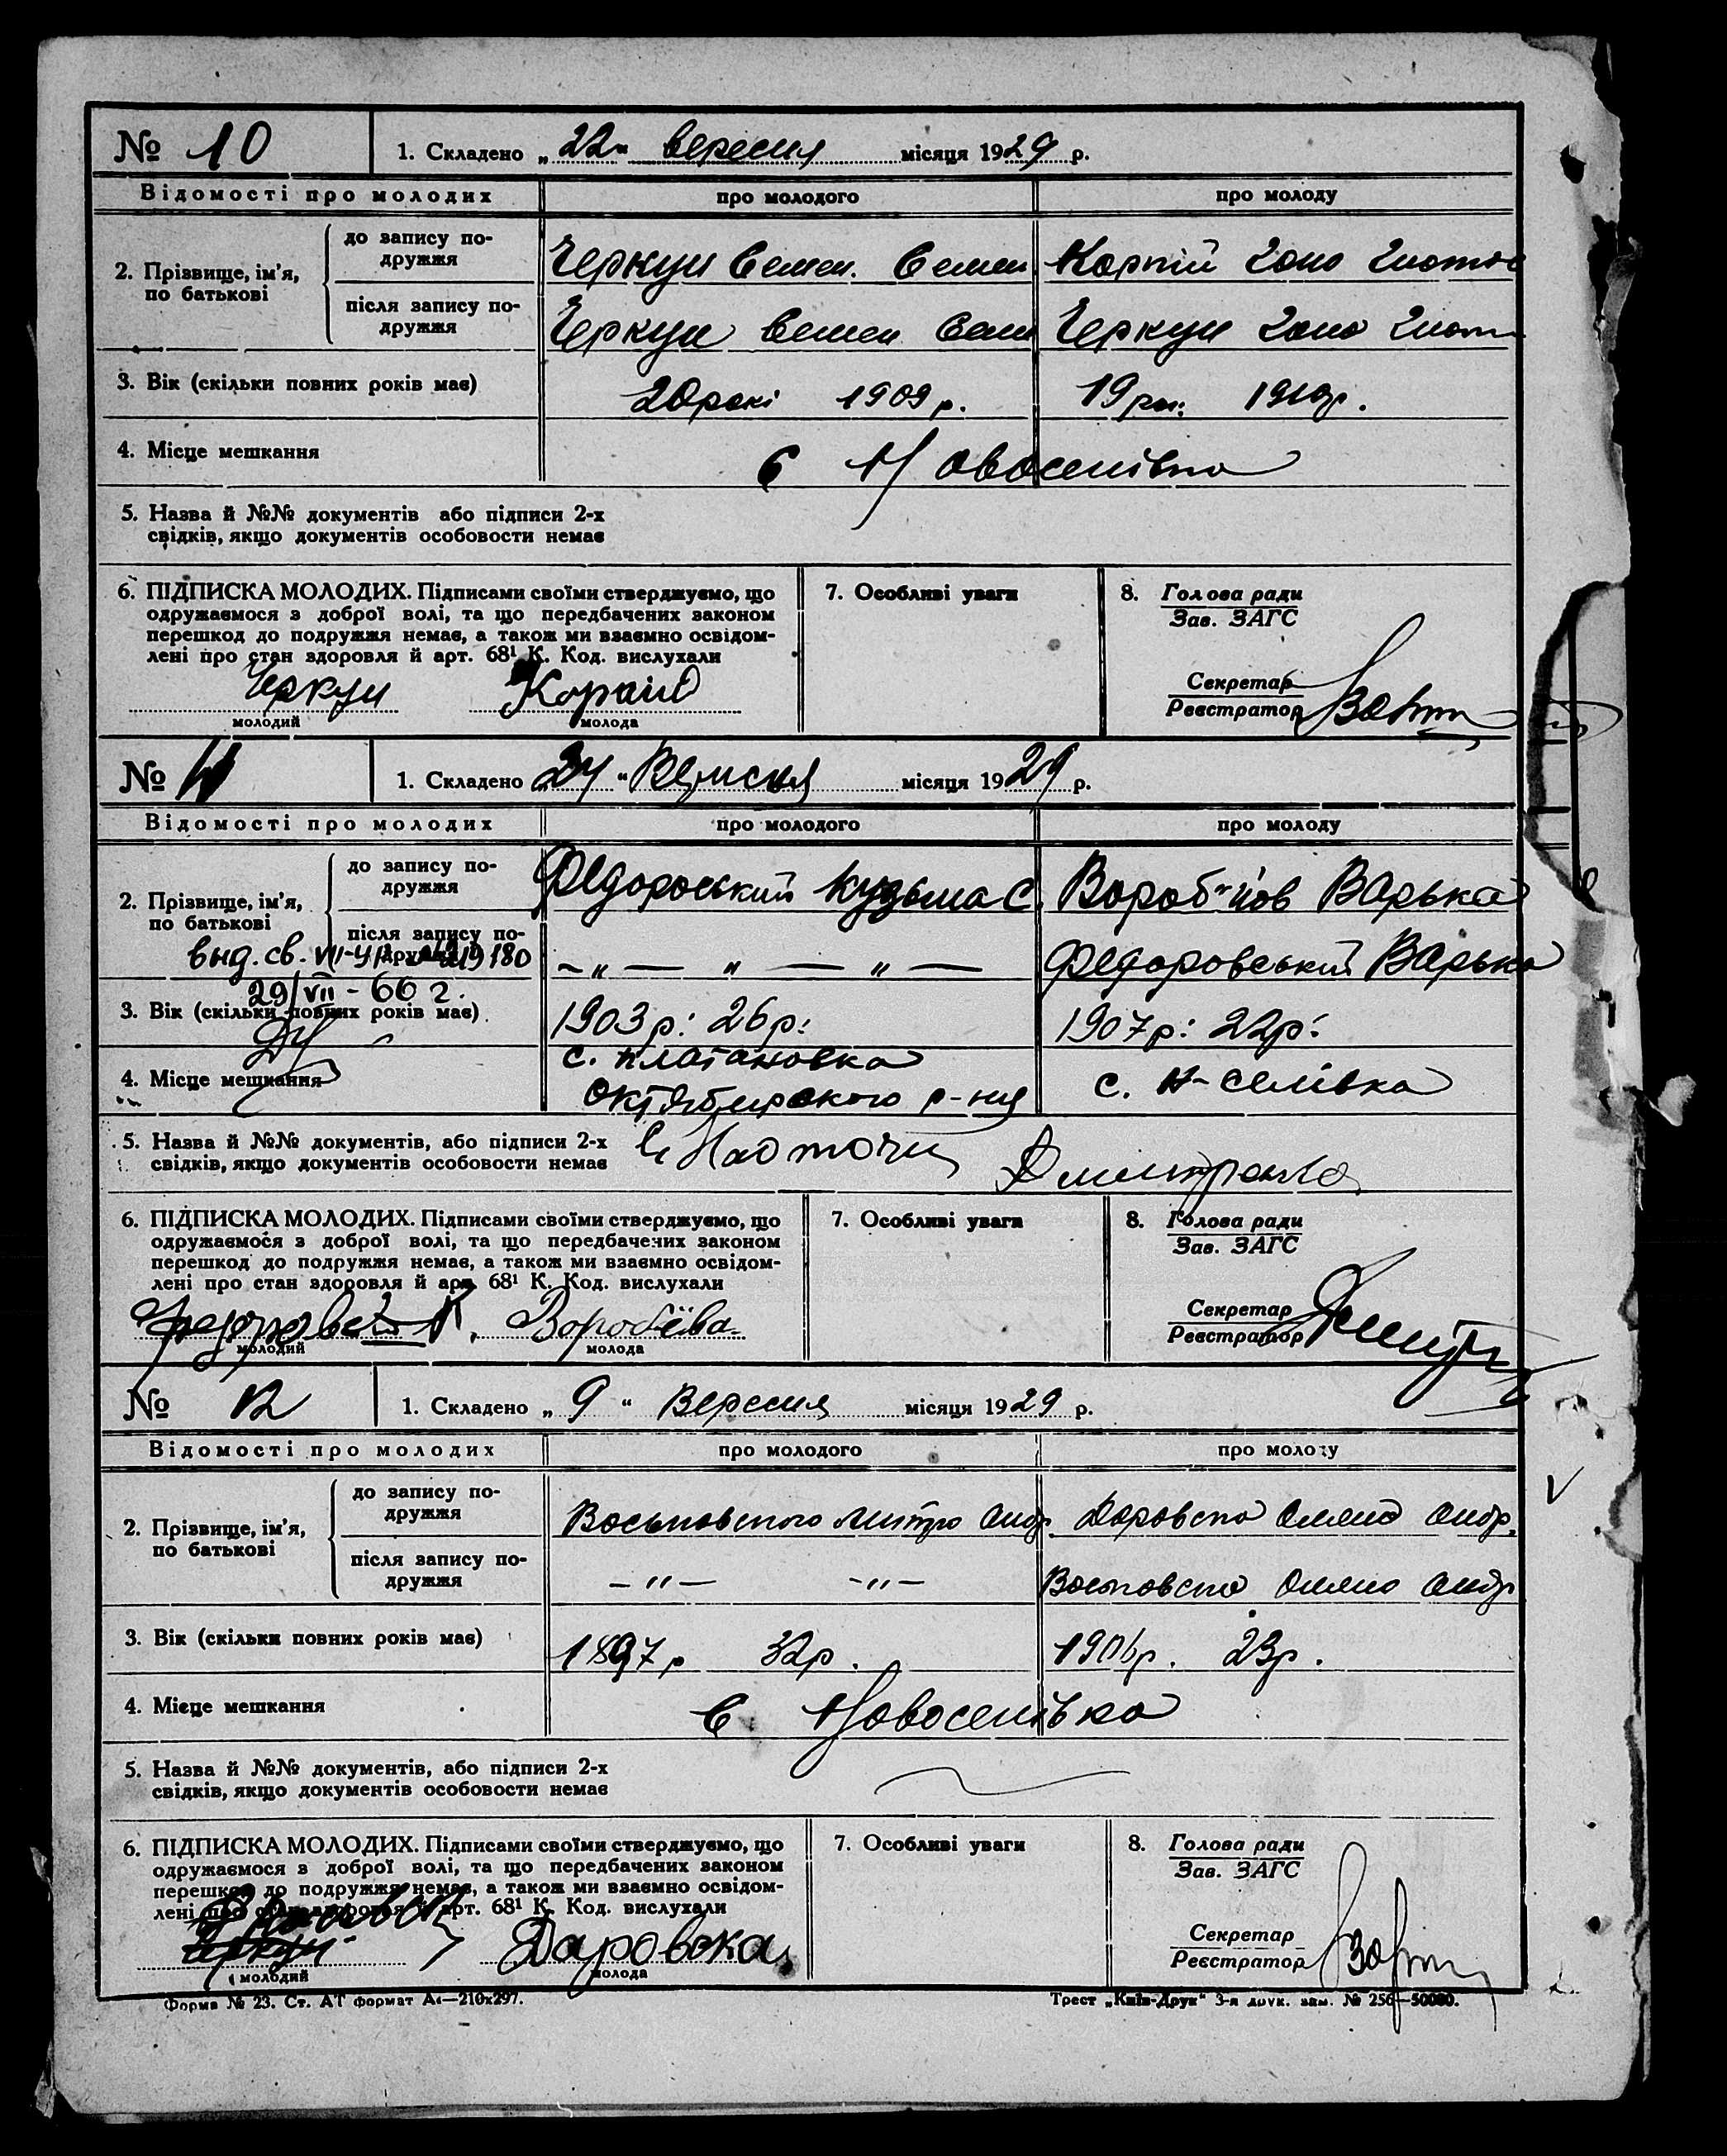 № 10
1. Складено „22“ вересня місяця 1929 р.
Відомості про молодих про молодого про молоду
2. Прізвище, ім’я, по батькові
до запису по-
дружжя
Черкун Семен. Семен Корпій
після запису по-
дружжя
Черкун Семен Сем Черкун
3. Вік (скільки повних років має) 20 рокі 1909 р. 19 ро: 1910р.
4. Місце мешкання С Новоселівка
5. Назва й №№ документів або підписи 2-х
свідків, якщо документів особовости немає
6. ПІДПИСКА МОЛОДИХ. Підписами своїми стверджуємо, що
одружаємося з доброї волі, та що передбачених законом
перешкод до подружжя немає, а також ми взаємно освідом-
лені про стан здоровля й арт. 68¹ К. Код. вислухали
Черкун Корпій
молодий молода
7. Особливі уваги
8. Голова ради
Зав. ЗАГС
Секретар
Реєстратор
№ 11
1. Складено „24“ Вересня місяця 1929 р.
Відомості про молодих про молодого про молоду
2. Прізвище, ім’я,
по батькові
до запису по-
дружжя
Федоровський Кузьма С. Вороб"йов Варька
після запису по-
дружжя
–"– " – " – Федоровський Варька
выд. св. 219180
29/VII - 66 г.
3. Вік (скільки повних років має) 1903 р: 26 р: 1907 р: 22р:
4. Місце мешкання
с. Платановка
Октябирского р-ня
с. Н-Селівка
5. Назва й №№ документів, або підписи 2-х
свідків, якщо документів особовости немає
Дмитренко
6. ПІДПИСКА МОЛОДИХ. Підписами своїми стверджуємо, що
одружаємося з доброї волі, та що передбачених законом
перешкод до подружжя немає, а також ми взаємно освідом-
лені про стан здоровля й арт. 68¹ К. Код. вислухали
К. Воробёва
молодий молода
7. Особливі уваги
8. Голова ради
Зав. ЗАГС
Секретар
Реєстратор
№ 12
1. Складено „9“ Вересня місяця 1929 р.
Відомості про молодих про молодого про молоду
2. Прізвище, ім’я,
по батькові
до запису по-
дружжя
Митро Андр. Доровско Олена Андр.
після запису по-
дружжя
–"– –"– Олено Андр
3. Вік (скільки повних років має) 1897 р 32р. 1906р. 23р.
4. Місце мешкання С Новоселівка
5. Назва й №№ документів, або підписи 2-х
свідків, якщо документів особовости немає
6. ПІДПИСКА МОЛОДИХ. Підписами своїми стверджуємо, що
одружаємося з доброї волі, та що передбачених законом
перешкод до подружжя немає, а також ми взаємно освідом-
лені про стан здоровля й арт. 68¹ К. Код. вислухали
Черкун Даровска
молодий молода
7. Особливі уваги
8. Голова ради
Зав. ЗАГС
Секретар
Реєстратор
Форма № 23. Ст. АТ формат А4—210х297.
Трест „Київ-Друк“ 3-я друк. зам. № 256—50000.